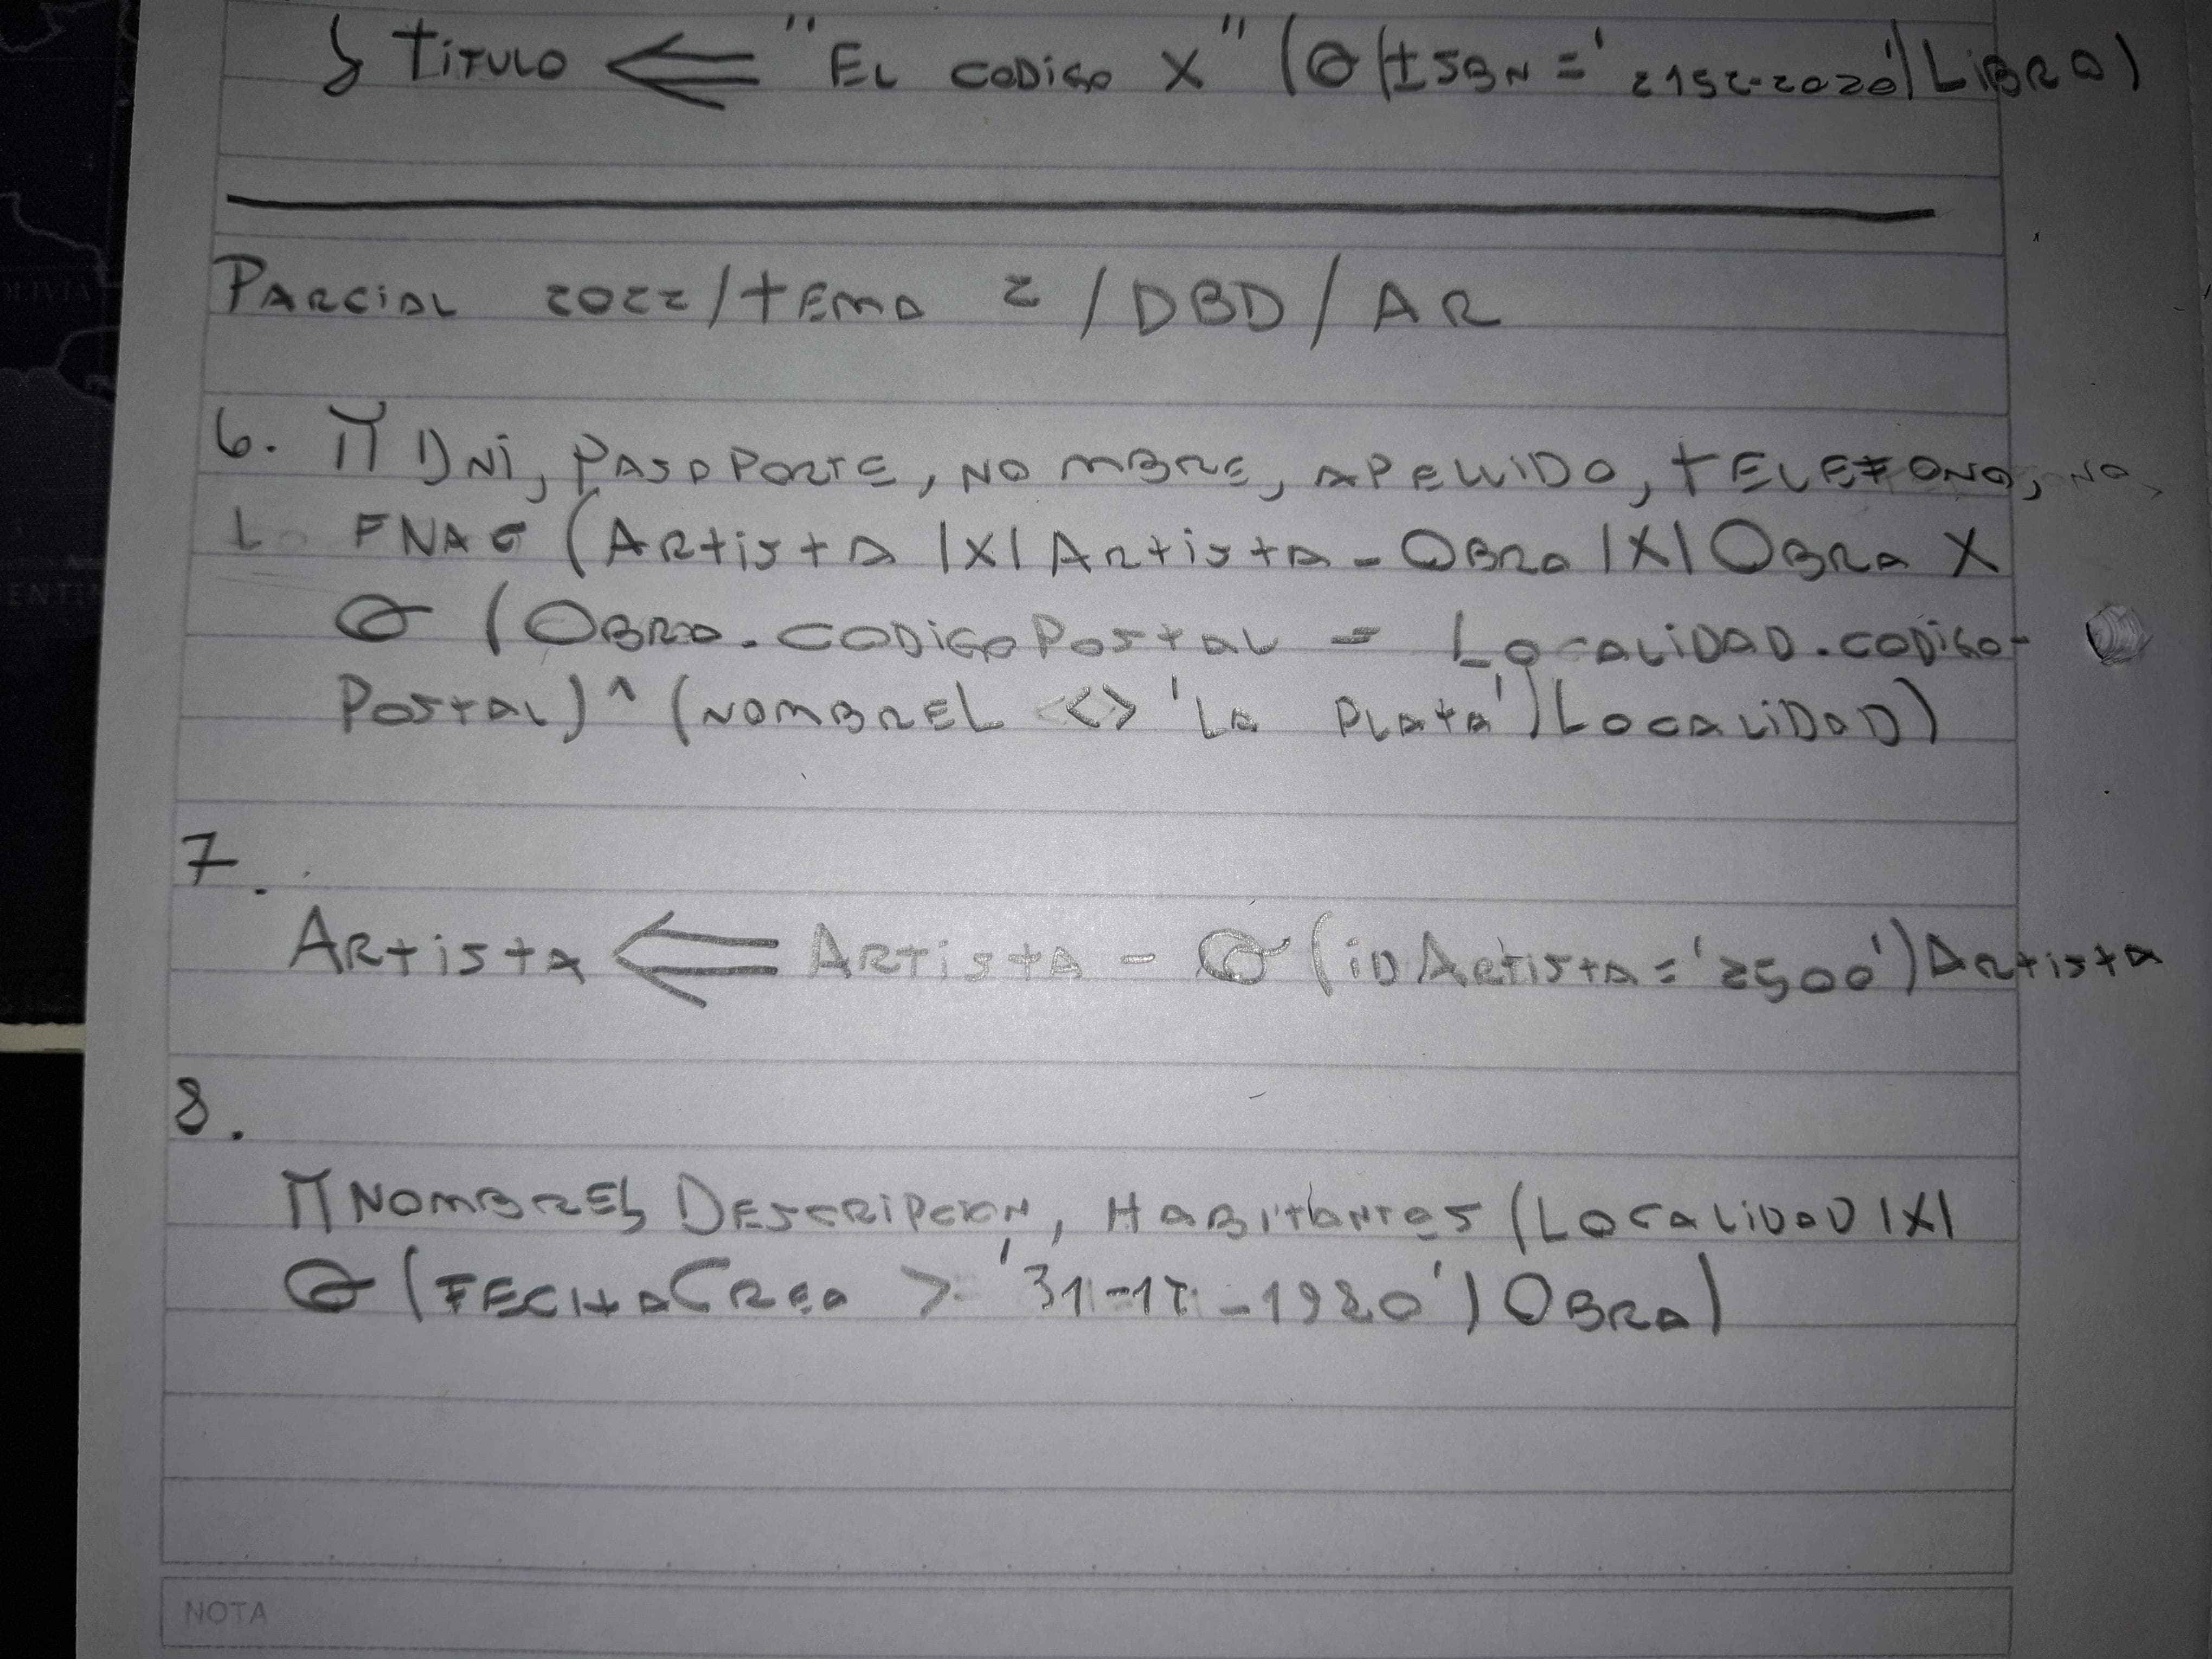 δ TITULO ⇐ "EL CODIGO X" (σ(ISBN='2152-2020')LIBRO)
PARCIAL 2022/TEMA 2/DBD/AR
6. π DNI, PASAPORTE, NOMBRE, APELLIDO, TELEFONO,
FNAC (ARTISTA |X| ARTISTA-OBRA |X| OBRA X
σ (OBRA.CODIGOPOSTAL = LOCALIDAD.CODIGO-
POSTAL) ^ (NOMBREL <> 'LA PLATA') LOCALIDAD)
7.
ARTISTA ⇐ ARTISTA - σ (IDARTISTA='2500') ARTISTA
8.
π NOMBREL, DESCRIPCION, HABITANTES (LOCALIDAD |X|
σ (FECHACREA > '31-12-1980') OBRA)
NOTA